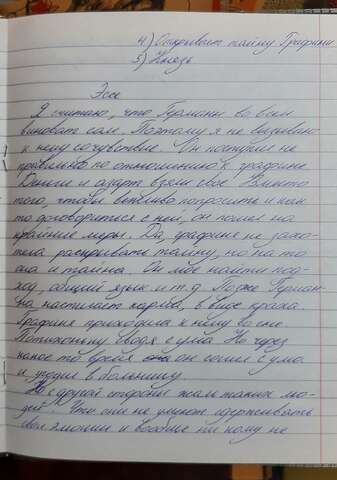 4) Открывает тайну Графини
5) Князь
Эссе
Я считаю, что Германн во всем
виноват сам. Поэтому я не вызываю
к нему сочувствие. Он поступил не
правильно по отношению к графине.
Деньги и азарт взяли свое. Вместо
того, чтобы вежливо попросить и как
то договориться с ней, он пошел на
крайние меры. Да, графиня не захо-
тела раскрывать тайну, но на то
она и тайна. Он мог найти под-
ход, общий язык и т.д. Позже Герман-
на настигает карма, в виде краха.
Графиня приходила к нему во сне.
Потихоньку сводя с ума. Но через
какое то время он сошел с ума
и угодил в больницу.
Но с другой стороны жаль таких лю-
дей. Что они не умеют сдерживать
свои эмоции и вообще ни кому не